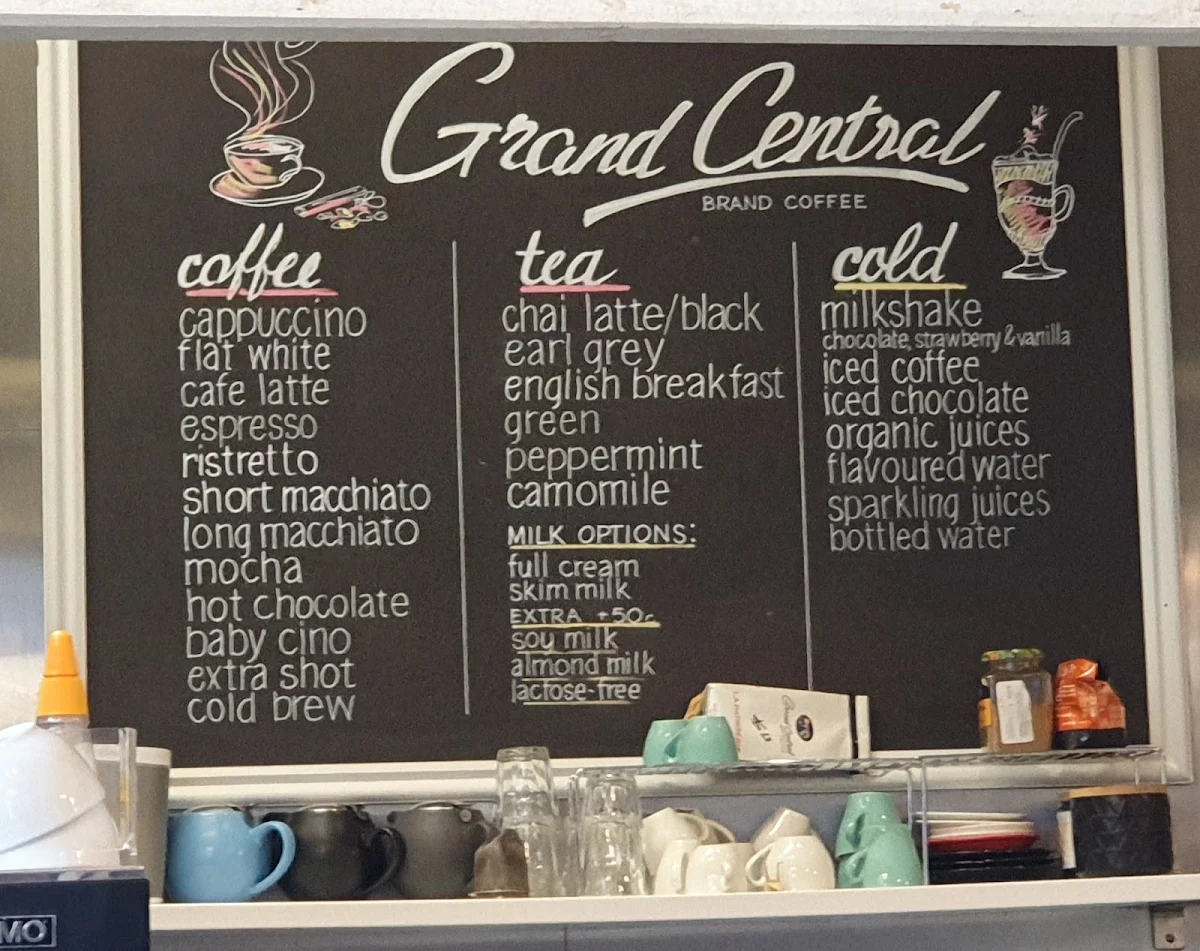 Grand Central
BRAND COFFEE
coffee
cappuccino
flat white
cafe latte
espresso
ristretto
short macchiato
long macchiato
mocha
hot chocolate
baby cino
extra shot
cold brew
tea
chai latte/black
earl grey
english breakfast
green
peppermint
camomile
MILK OPTIONS:
full cream
skim milk
EXTRA +50c
soy milk
almond milk
lactose-free
cold
milkshake
chocolate, strawberry & vanilla
iced coffee
iced chocolate
organic juices
flavoured water
sparkling juices
bottled water
MO